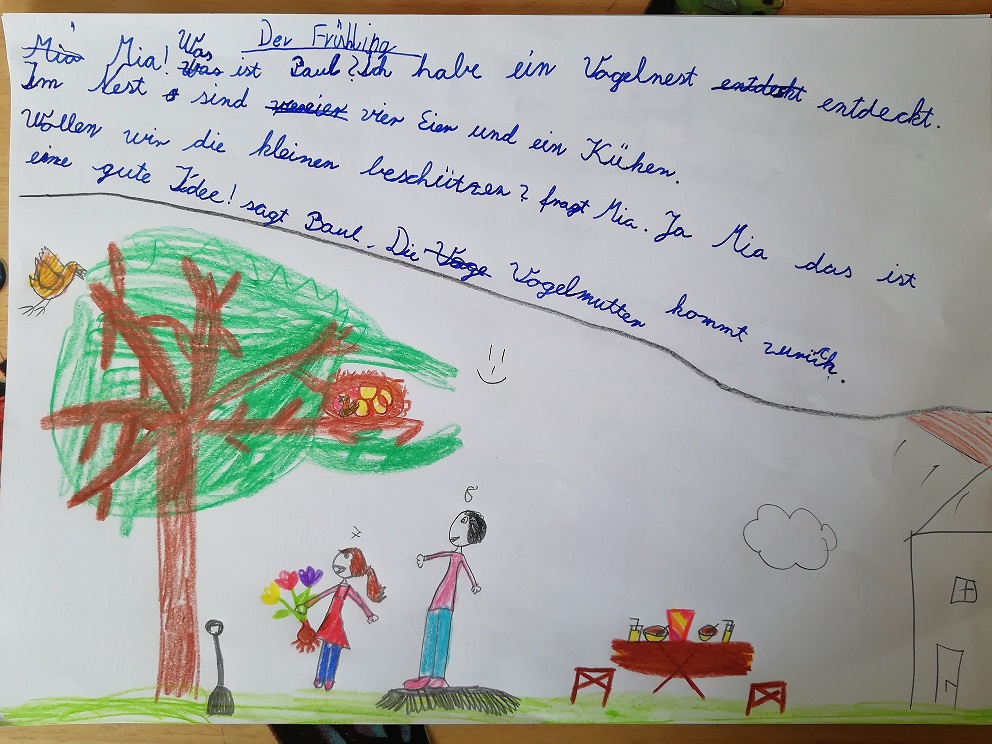 Der Frühling
Mia Mia! Was ist Paul? Ich habe ein Vogelnest entdeckt entdeckt.
Im Nest sind vier Eier und ein Küken.
Wollen wir die kleinen beschützen? fragt Mia. Ja Mia das ist
eine gute Idee! sagt Paul. Die Voge Vogelmutter kommt zurück.
7
8